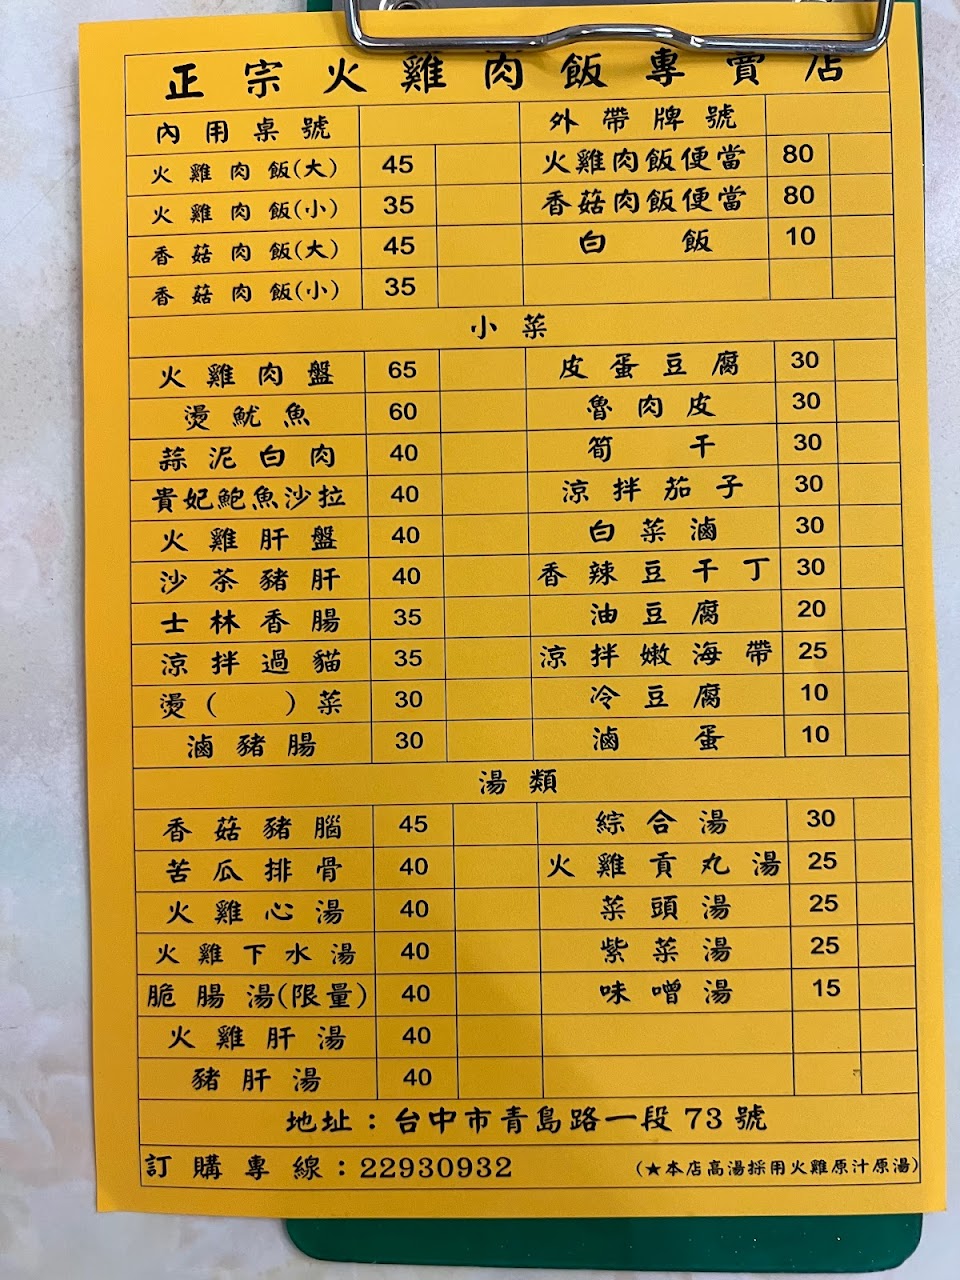 正宗火雞肉飯專賣店
內用桌號 外帶牌號
火雞肉飯(大) 45 火雞肉飯便當 80
火雞肉飯(小) 35 香菇肉飯便當 80
香菇肉飯(大) 45 白飯 10
香菇肉飯(小) 35
小菜
火雞肉盤 65 皮蛋豆腐 30
燙魷魚 60 魯肉皮 30
蒜泥白肉 40 筍干 30
貴妃鮑魚沙拉 40 涼拌茄子 30
火雞肝盤 40 白菜滷 30
沙茶豬肝 40 香辣豆干丁 30
士林香腸 35 油豆腐 20
涼拌過貓 35 涼拌嫩海帶 25
燙( )菜 30 冷豆腐 10
滷豬腸 30 滷蛋 10
湯類
香菇豬腦 45 綜合湯 30
苦瓜排骨 40 火雞貢丸湯 25
火雞心湯 40 菜頭湯 25
火雞下水湯 40 紫菜湯 25
脆腸湯(限量) 40 味噌湯 15
火雞肝湯 40
豬肝湯 40
地址：台中市青島路一段73號
訂購專線：22930932 (★本店高湯採用火雞原汁原湯)